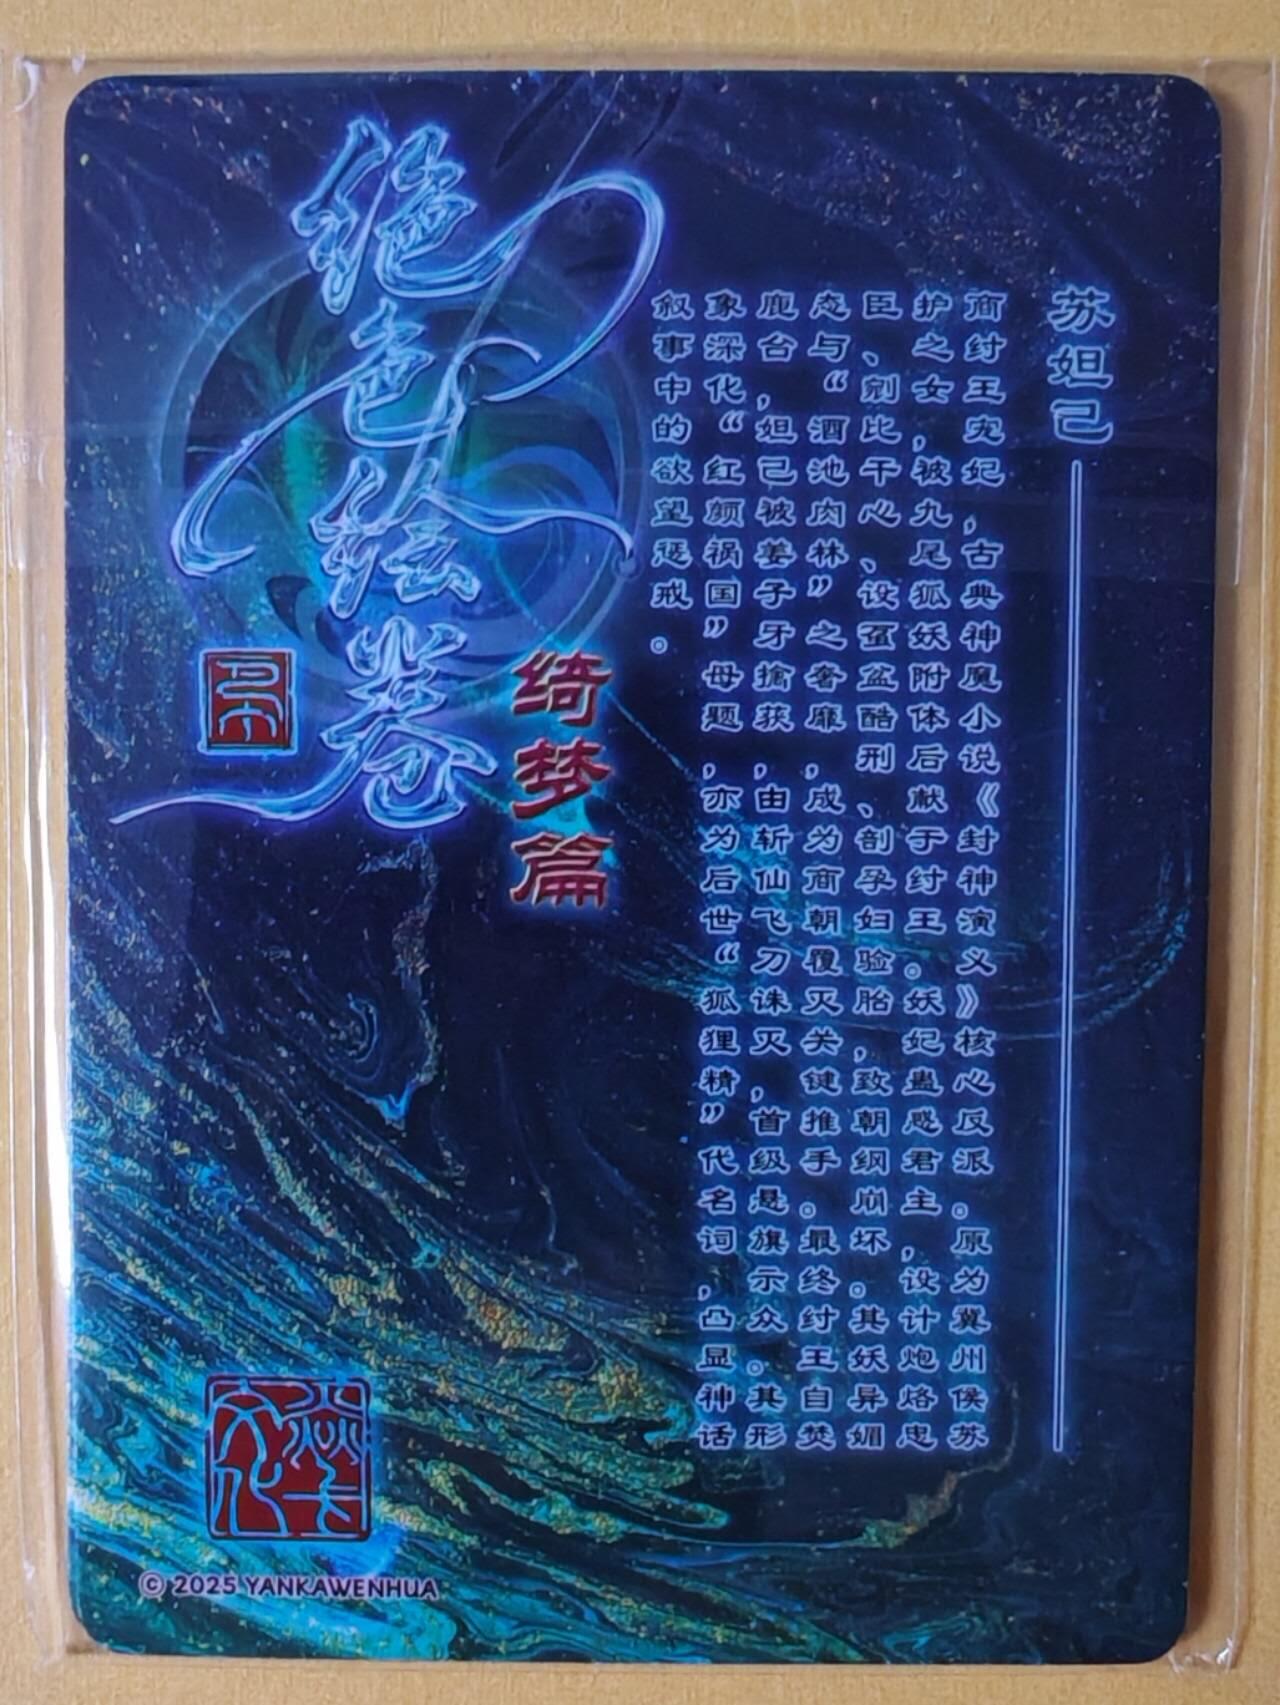 苏妲己
商纣王宠妃，古典神魔小说《封神演义》核心反派。原为冀州侯苏
护之女，被九尾狐妖附体后献于纣王。妖妃蛊惑君主，设计炮烙忠
臣、剜比干心、设虿盆酷刑、剖孕妇验胎，致朝纲崩坏。其妖异媚
态与“酒池肉林”之奢靡，成为商朝覆灭关键推手。最终纣王自焚
鹿台，妲己被姜子牙擒获，由斩仙飞刀诛灭，首级悬旗示众。其形
象深化“红颜祸国”母题，亦为后世“狐狸精”代名词，凸显神话
叙事中的欲望惩戒。
绮梦篇
绝色绘卷
焱卡文化
© 2025 YANKAWENHUA